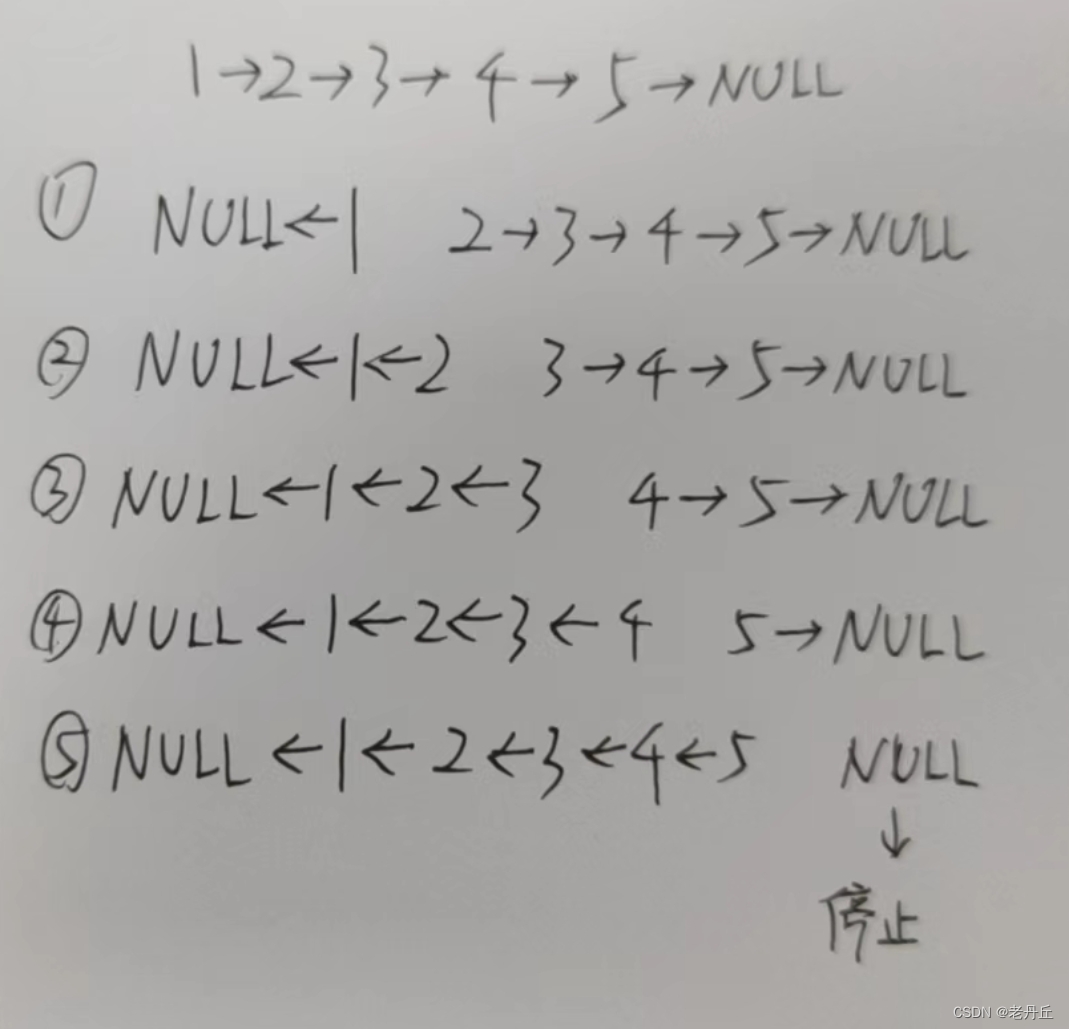 1→2→3→4→5→NULL
① NULL←1 2→3→4→5→NULL
② NULL←1←2 3→4→5→NULL
③ NULL←1←2←3 4→5→NULL
④ NULL←1←2←3←4 5→NULL
⑤ NULL←1←2←3←4←5 NULL
↓
停止
CSDN @老丹丘